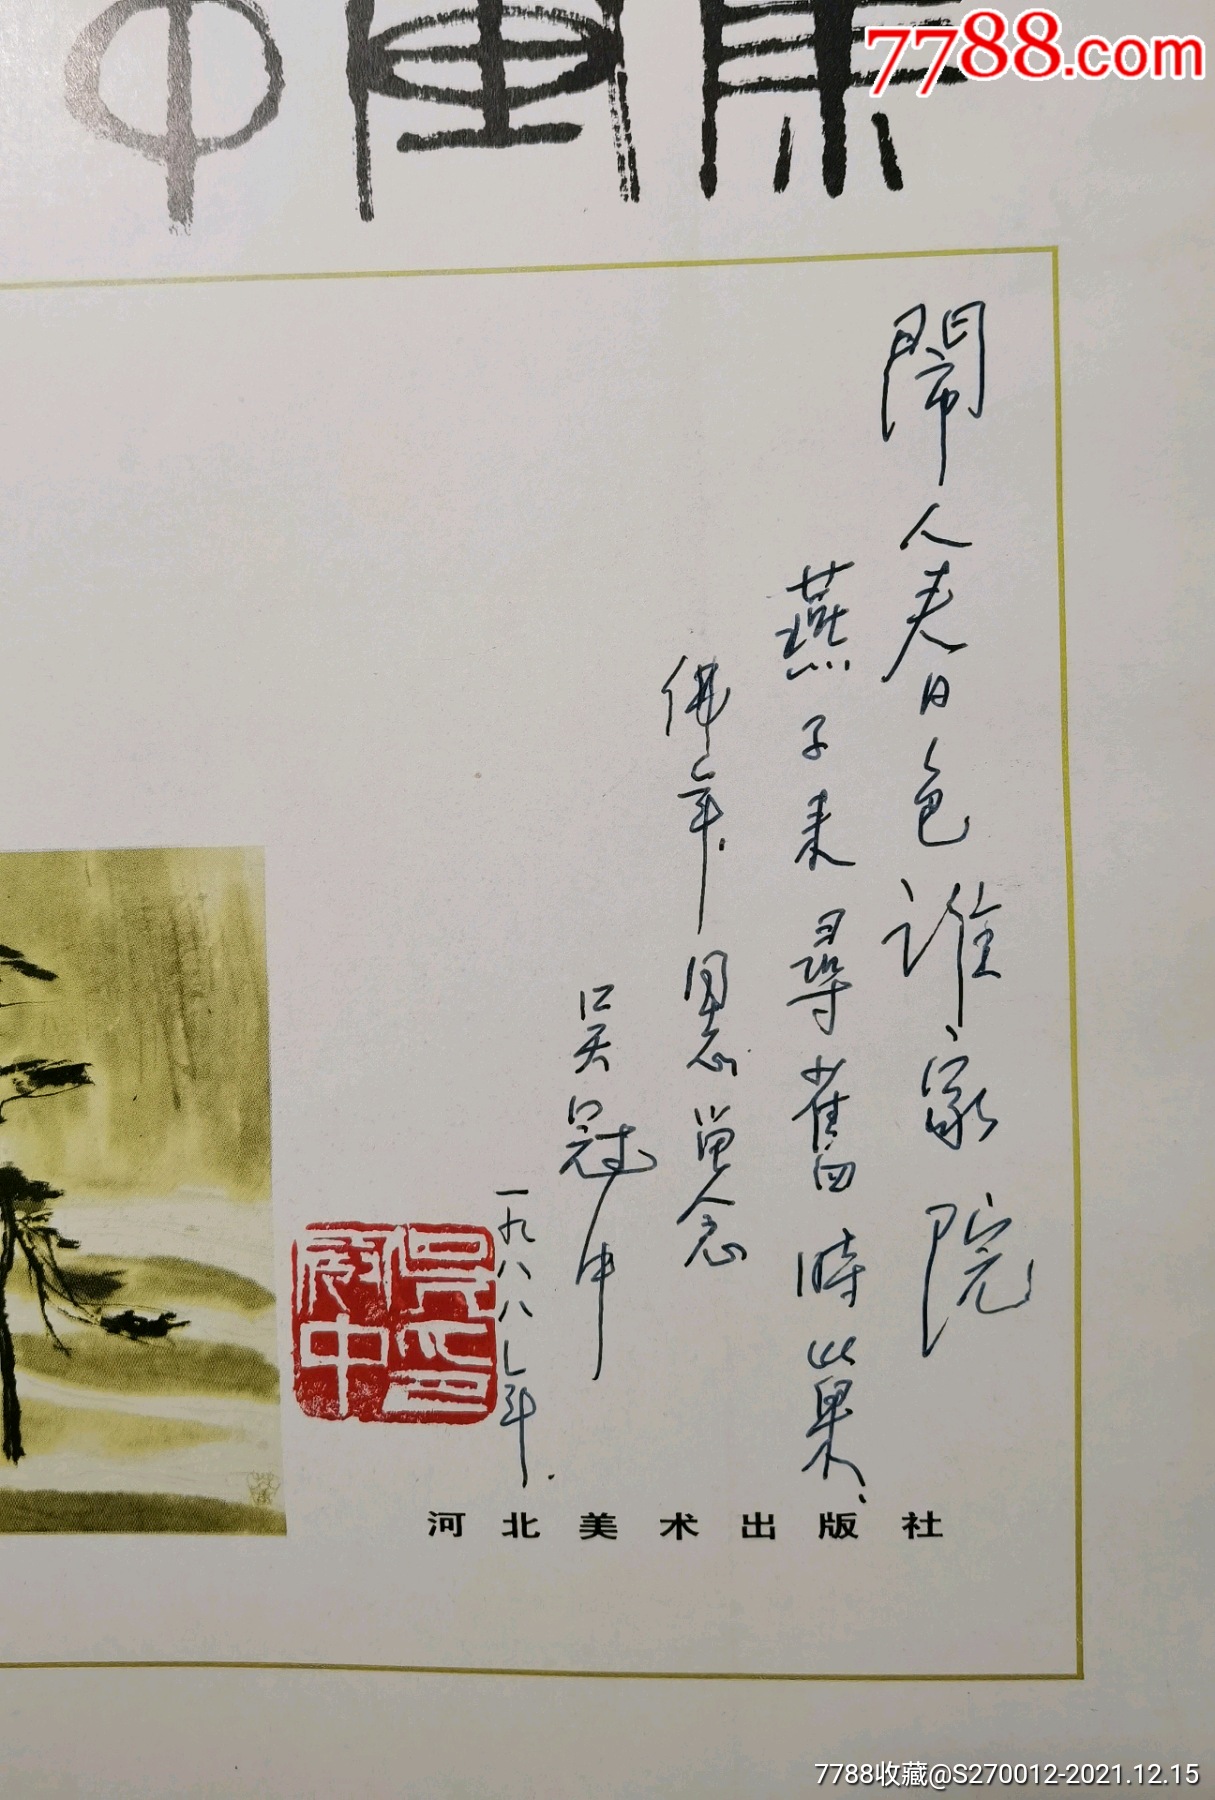 7788.com
中画集
鬧人春色誰家院
燕子來尋舊時巢
佛年同志留念
吴冠中
一九八八七年
吳冠中印
河北美术出版社
7788收藏@S270012-2021.12.15